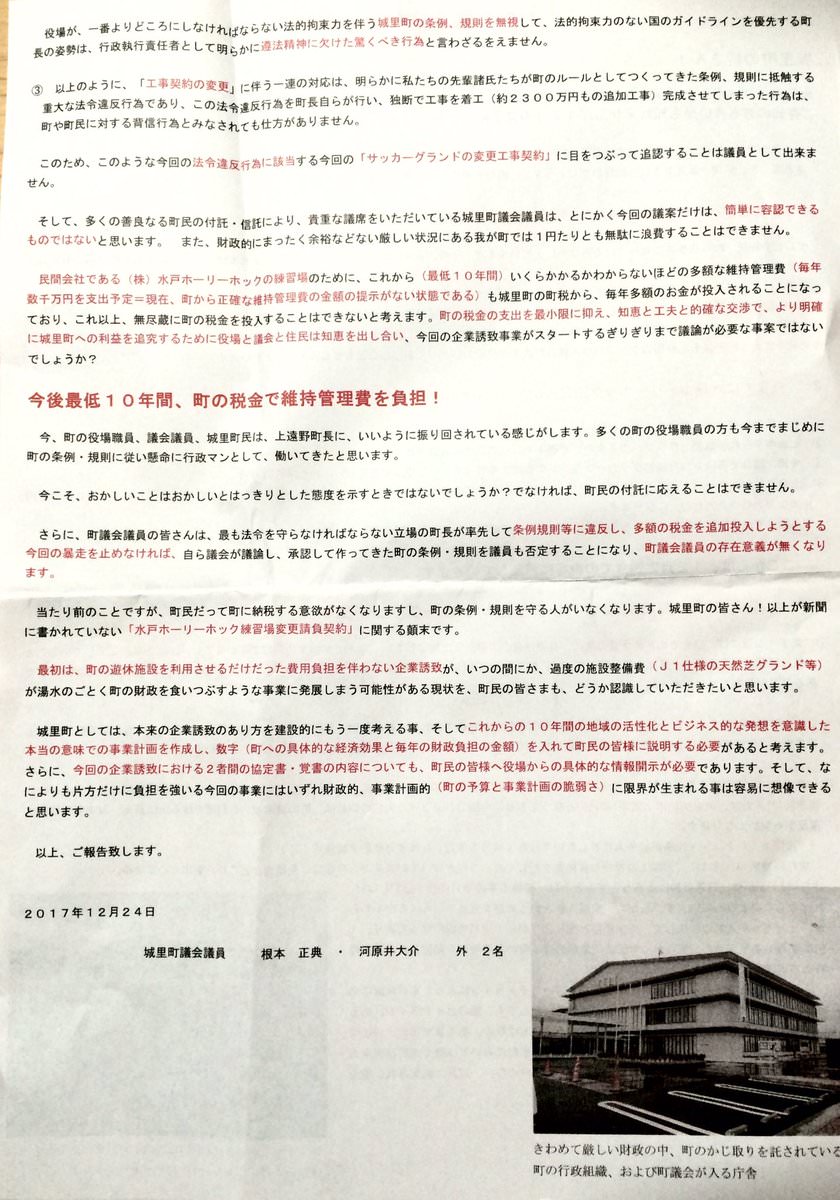 役場が、一番よりどころにしなければならない法的拘束力を伴う城里町の条例、規則を無視して、法的拘束力のない国のガイドラインを優先する町
長の姿勢は、行政執行責任者として明らかに遵法精神に欠けた驚くべき行為と言わざるをえません。
③ 以上のように、「工事契約の変更」に伴う一連の対応は、明らかに私たちの先輩諸氏たちが町のルールとしてつくってきた条例、規則に抵触する
重大な法令違反行為であり、この法令違反行為を町長自らが行い、独断で工事を着工（約２３００万円もの追加工事）完成させてしまった行為は、
町や町民に対する背信行為とみなされても仕方がありません。
このため、このような今回の法令違反行為に該当する今回の「サッカーグランドの変更工事契約」に目をつぶって追認することは議員として出来ま
せん。
そして、多くの善良なる町民の付託・信託により、貴重な議席をいただいている城里町議会議員は、とにかく今回の議案だけは、簡単に容認できる
ものではないと思います。 また、財政的にまったく余裕などない厳しい状況にある我が町では１円たりとも無駄に浪費することはできません。
民間会社である（株）水戸ホーリーホックの練習場のために、これから（最低１０年間）いくらかかるかわからないほどの多額な維持管理費（毎年
数千万円を支出予定＝現在、町から正確な維持管理費の金額の提示がない状態である）も城里町の町税から、毎年多額のお金が投入されることになっ
ており、これ以上、無尽蔵に町の税金を投入することはできないと考えます。町の税金の支出を最小限に抑え、知恵と工夫と的確な交渉で、より明確
に城里町への利益を追究するために役場と議会と住民は知恵を出し合い、今回の企業誘致事業がスタートするぎりぎりまで議論が必要な事案ではない
でしょうか？
今後最低１０年間、町の税金で維持管理費を負担！
今、町の役場職員、議会議員、城里町民は、上遠野町長に、いいように振り回されている感じがします。多くの町の役場職員の方も今までまじめに
町の条例・規則に従い懸命に行政マンとして、働いてきたと思います。
今こそ、おかしいことはおかしいとはっきりとした態度を示すときではないでしょうか？でなければ、町民の付託に応えることはできません。
さらに、町議会議員の皆さんは、最も法令を守らなければならない立場の町長が率先して条例規則等に違反し、多額の税金を追加投入しようとする
今回の暴走を止めなければ、自ら議会が議論し、承認して作ってきた町の条例・規則を議員も否定することになり、町議会議員の存在意義が無くなり
ます。
当たり前のことですが、町民だって町に納税する意欲がなくなりますし、町の条例・規則を守る人がいなくなります。城里町の皆さん！以上が新聞
に書かれていない「水戸ホーリーホック練習場変更請負契約」に関する顛末です。
最初は、町の遊休施設を利用させるだけだった費用負担を伴わない企業誘致が、いつの間にか、過度の施設整備費（Ｊ１仕様の天然芝グランド等）
が湯水のごとく町の財政を食いつぶすような事業に発展しまう可能性がある現状を、町民の皆さまも、どうか認識していただきたいと思います。
城里町としては、本来の企業誘致のあり方を建設的にもう一度考える事、そしてこれからの１０年間の地域の活性化とビジネス的な発想を意識した
本当の意味での事業計画を作成し、数字（町への具体的な経済効果と毎年の財政負担の金額）を入れて町民の皆様に説明する必要があると考えます。
さらに、今回の企業誘致における２者間の協定書・覚書の内容についても、町民の皆様へ役場からの具体的な情報開示が必要であります。そして、な
によりも片方だけに負担を強いる今回の事業にはいずれ財政的、事業計画的（町の予算と事業計画の脆弱さ）に限界が生まれる事は容易に想像できる
と思います。
以上、ご報告致します。
２０１７年１２月２４日
城里町議会議員 根本 正典 ・ 河原井大介 外 ２名
きわめて厳しい財政の中、町のかじ取りを託されている
町の行政組織、および町議会が入る庁舎